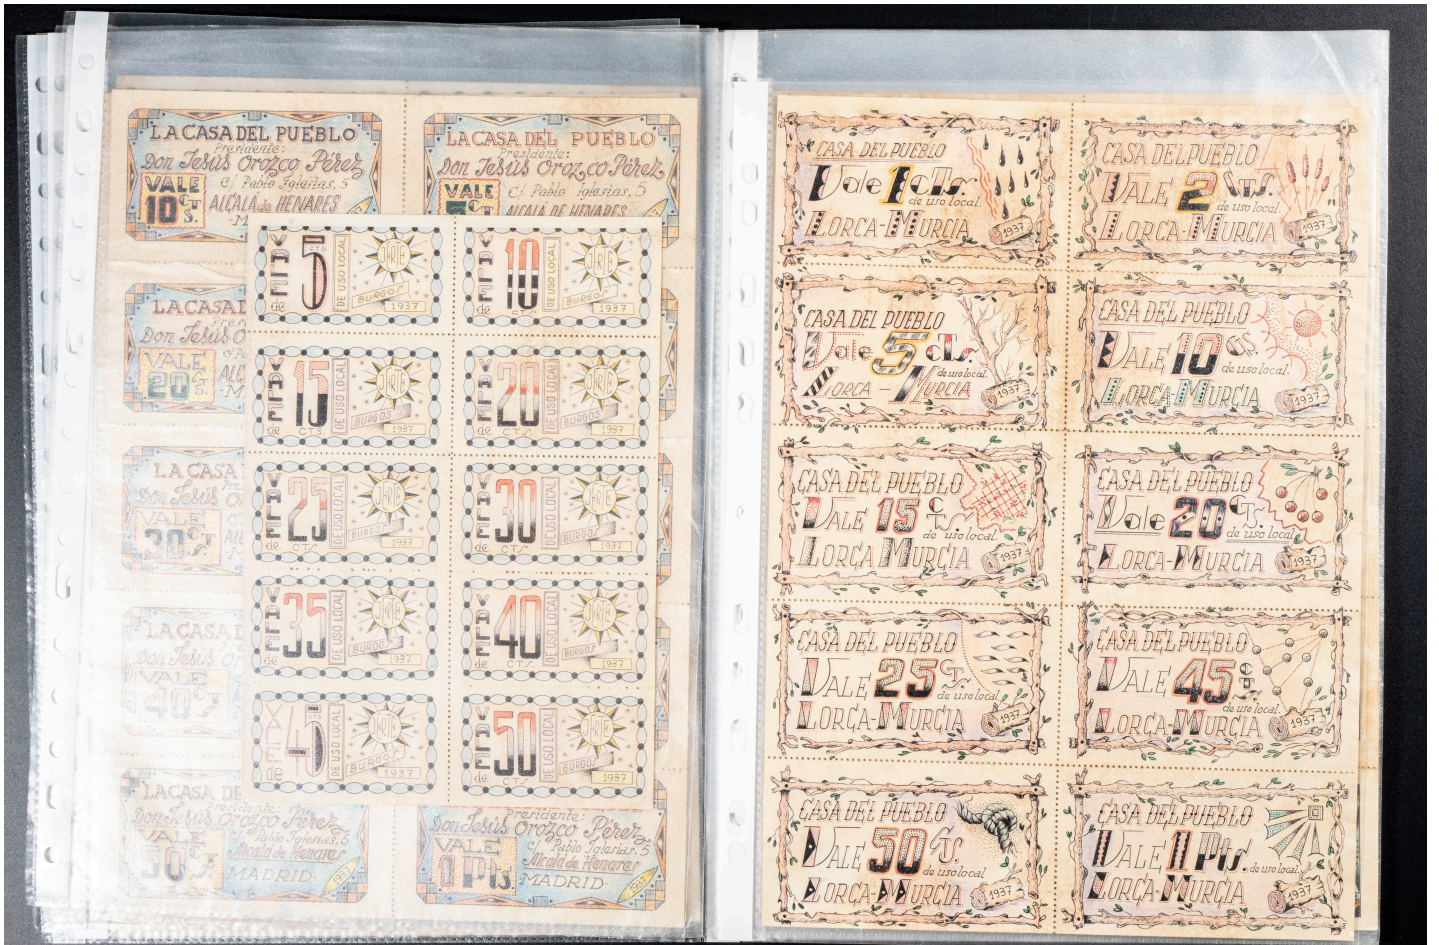 LA CASA DEL PUEBLO
Presidente:
Don Jesús Orozco Pérez
VALE
10 CTS.
C/ Pablo Iglesias, 5
ALCALÁ de HENARES
LA CASA DEL PUEBLO
Presidente:
Don Jesús Orozco Pérez
VALE
5 CT
C/ Pablo Iglesias, 5
ALCALÁ DE HENARES
LA CASA D
Don Jesús O
VALE
20
ALC
LA CASA
Don Jesús O
VALE
30
LA CASA D
Don Jesús Or
VALE
40
LA CASA DE
Presidente:
Don Jesús Orozco Pérez
VALE
50
Pablo Iglesias, 5
Alcalá de Henares
MADRID
1937
Presidente:
Don Jesús Orozco Pérez
VALE
1 Pts
C/ Pablo Iglesias, 5
Alcalá de Henares
MADRID-
1937
VALE de
5
CTS
DE USO LOCAL
J·R·T·E
BURGOS
1937
VALE de
10
CTS
DE USO LOCAL
J·R·T·E
BURGOS
1937
VALE de
15
CTS
DE USO LOCAL
J·R·T·E
BURGOS
1937
VALE de
20
CTS
DE USO LOCAL
J·R·T·E
BURGOS
1937
VALE de
25
CTS
DE USO LOCAL
J·R·T·E
BURGOS
1937
VALE de
30
CTS
DE USO LOCAL
J·R·T·E
BURGOS
1937
VALE de
35
CTS
DE USO LOCAL
J·R·T·E
BURGOS
1937
VALE de
40
CTS
DE USO LOCAL
J·R·T·E
BURGOS
1937
VALE de
45
CTS
DE USO LOCAL
J·R·T·E
BURGOS
1937
VALE de
50
CTS
DE USO LOCAL
J·R·T·E
BURGOS
1937
CASA DEL PUEBLO
Vale 1 CTS.
de uso local.
LORCA-MURCIA
1937
CASA DEL PUEBLO
VALE 2 CTS.
de uso local.
LORCA-MURCIA
1937
CASA DEL PUEBLO
Vale 5 CTS.
de uso local.
LORCA - MURCIA
1937
CASA DEL PUEBLO
VALE 10 CTS.
de uso local.
LORCA-MURCIA
1937
CASA DEL PUEBLO
VALE 15 CTS.
de uso local.
LORCA MURCIA
1937
CASA DEL PUEBLO
Vale 20 CTS.
de uso local.
LORCA-MURCIA
1937
CASA DEL PUEBLO
VALE 25 CTS.
de uso local.
LORCA-MURCIA
1937
CASA DEL PUEBLO
VALE 45 CTS.
de uso local.
LORCA-MURCIA
1937
CASA DEL PUEBLO
VALE 50 CTS.
de uso local
LORCA-MURCIA
1937
CASA DEL PUEBLO
VALE 1 Pts.
de uso local.
LORCA-MURCIA
1937